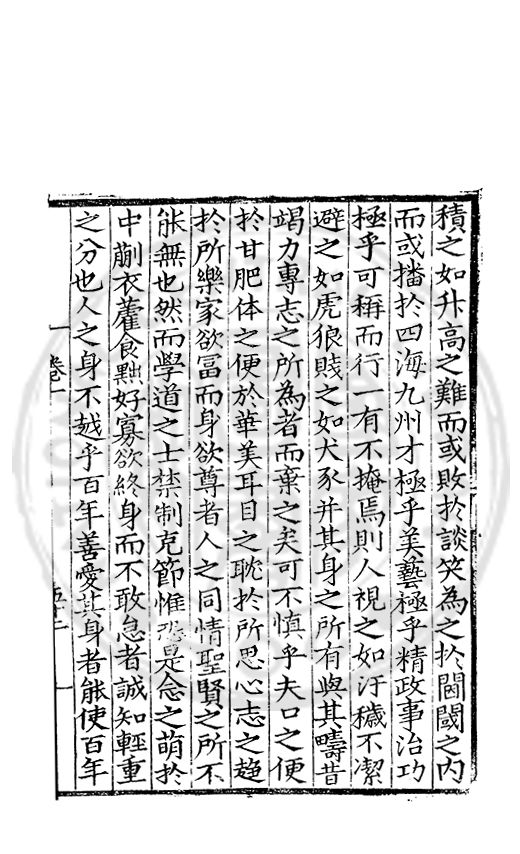 積之如升高之難而或敗扵談笑為之扵閨閾之內
而或播扵四海九州才極乎美藝極乎精政事治功
極乎可稱而行一有不掩焉則人視之如汙穢不潔
避之如虎狼賤之如犬豕并其身之所有與其疇昔
竭力專志之所為者而棄之矣可不慎乎夫口之便
扵甘肥体之便於華美耳目之耽扵所思心志之趋
扵所樂家欲冨而身欲尊者人之同情聖賢之所不
能無也然而學道之士禁制克節惟恐是念之萌扵
中蒯衣藿食黜好寡欲終身而不敢怠者誠知輕重
之分也人之身不越乎百年善愛其身者能使百年
卷一
五十二